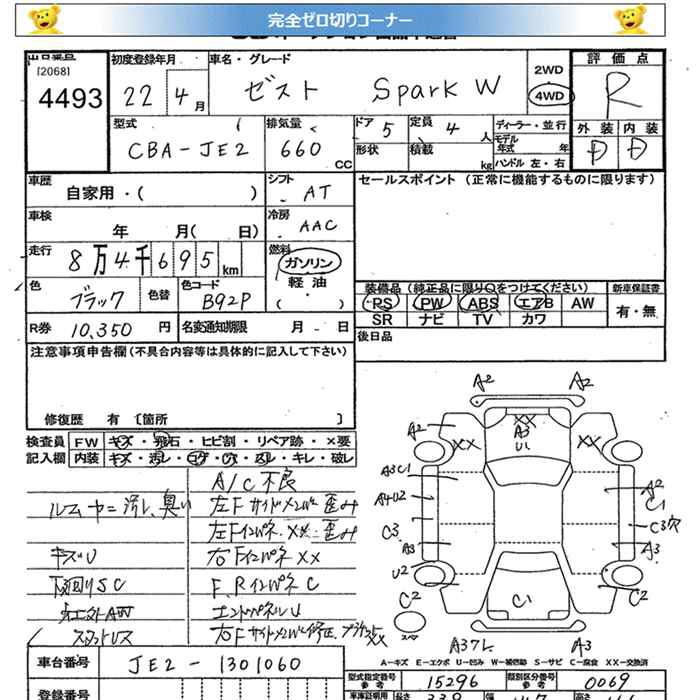 完全ゼロ切りコーナー
出品番号 初度登録年月 車名・グレード 評価点
[2068]
4493 22 4月 ゼスト Spark W 2WD 4WD R
型式 排気量 ドア 5 定員 4人 ディーラー・並行 外装 内装
モデル年式 年
CBA-JE2 660 CC 形状 積載 kg ハンドル 左・右 D D
車歴 シフト セールスポイント (正常に機能するものに限ります)
自家用・( ) AT
車検 冷房
年 月( 日) AAC
走行 燃料
8万4千695km ガソリン
色 色替 色コード 軽油
ブラック B92P ( ・ )
装備品 (純正品に限り○をつけてください) 新車保証書
PS PW ABS エアB AW 有・無
SR ナビ TV カワ
R券 10,350円 名変通知期限 月 日
後日品
注意事項申告欄(不具合内容等は具体的に記入して下さい)
修復歴 有 〔箇所 〕
検査員 FW キズ・飛石・ヒビ割・リペア跡・×要
記入欄 内装 キズ・汚レ・コゲ・穴・スレ・キレ・破レ
A/C不良
ルームヤニ汚レ、臭い 左Fサイドメンバー歪み
左Fインパネ XX 歪み
キズU 右Fインパネ XX
下回りSC F,RインパネC
エンドパネルU
スタットレス
A2 A2
A2 XX XX
A3
U1
A3C1
A4U2 A2
C1
C3 C3穴
A3 A3
U2
C2 C1 C2
スペア
A3 7L A3
A-キズ E-エクボ U-凹み W-補修跡 S-サビ C-腐食 XX-交換済
車台番号 JE2-1301060
型式指定番号 参考 15296 類別区分番号 参考 0069
登録番号